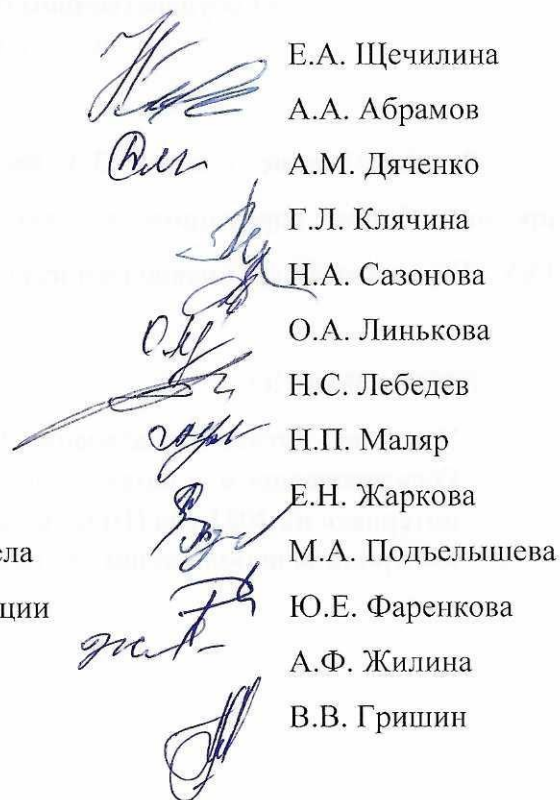 Е.А. Щечилина
А.А. Абрамов
А.М. Дяченко
Г.Л. Клячина
Н.А. Сазонова
О.А. Линькова
Н.С. Лебедев
Н.П. Маляр
Е.Н. Жаркова
ела М.А. Подъелышева
ции Ю.Е. Фаренкова
А.Ф. Жилина
В.В. Гришин